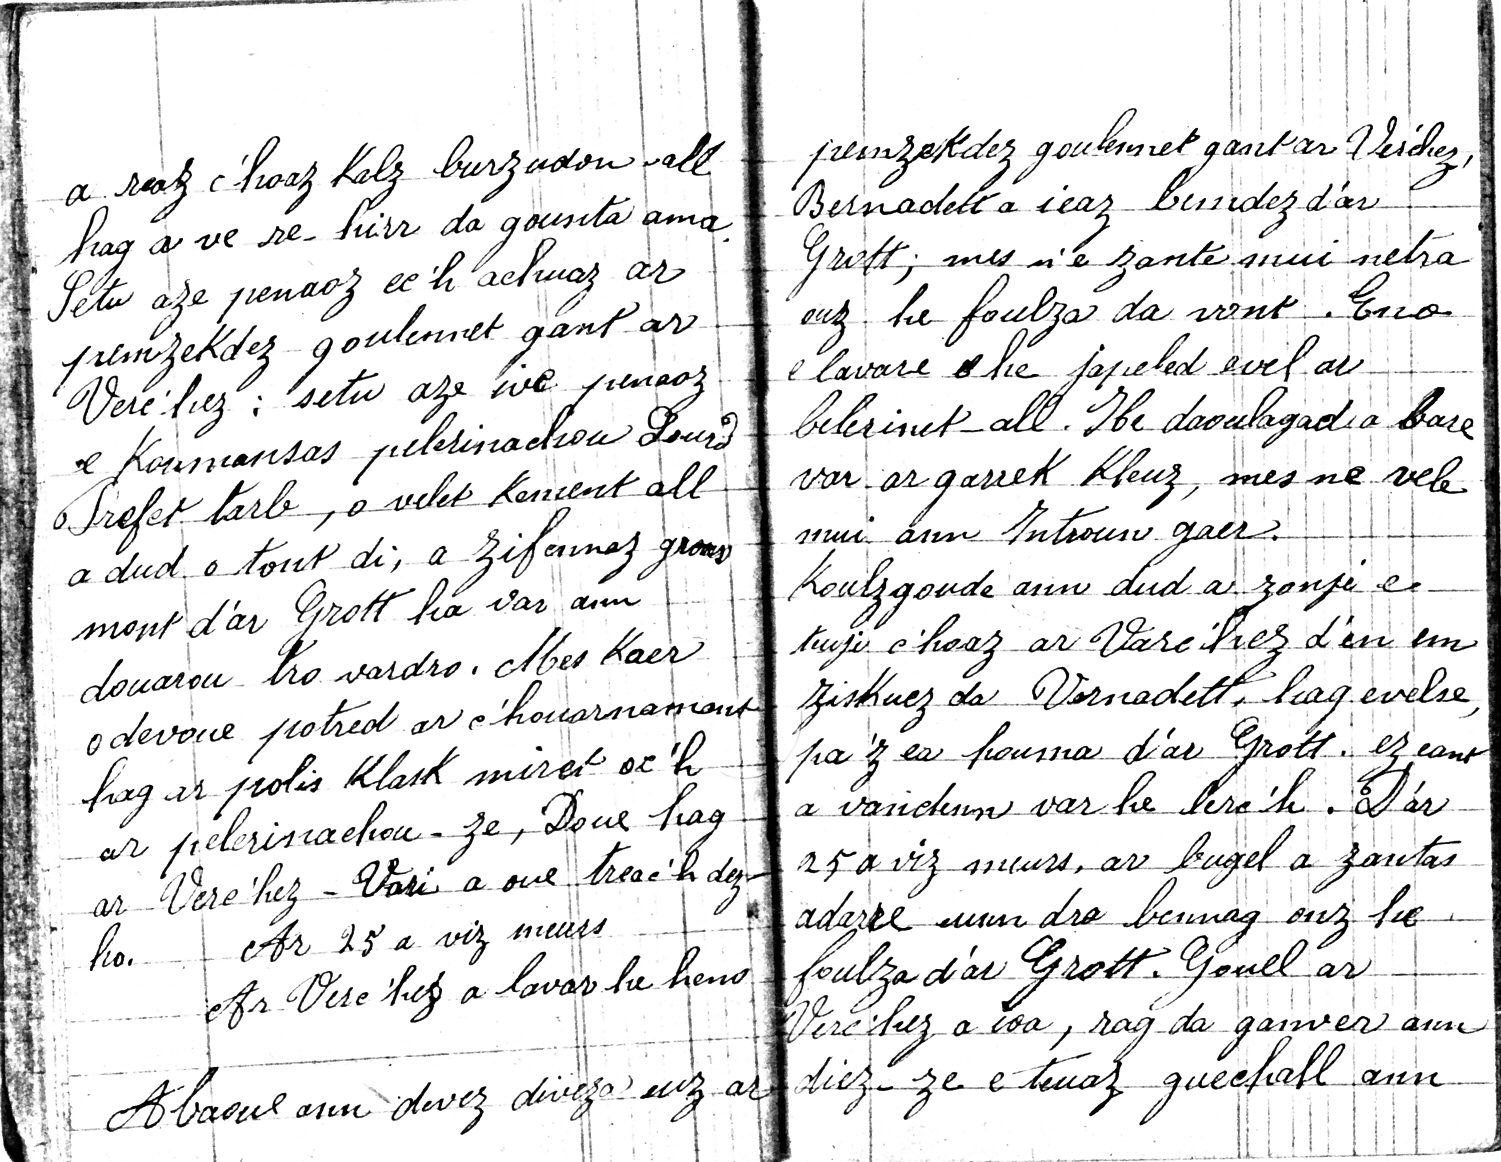 a reaz c'hoaz Kalz burzudou all
hag a ve re-hirr da gounta ama.
Setu aze penaoz ec'h achuaz ar
pemzekdez goulennet gant ar
Verc'hez : setu aze ive penaoz
e Koumansas pelerinachou Lourd
Prefet tarb, o velet Kement all
a dud o tont di, a zifennaz groas
mont d'ar Grott ha var ann
douarou tro vardro. Mes Kaer
o devoue potred ar c'houarnamant
hag ar polis Klask miret oc'h
ar pelerinachou-ze, Doue hag
ar Verc'hez-Vari a oue treac'h dez-
ho. Ar 25 a viz meurs
Ar Verc'hez a lavar he heno
Abaoue ann devez diveza euz ar
pemzekdez goulennet gant ar Verc'hez,
Bernadett a ieaz bemdez d'ar
Grott; mes n'e zante mui netra
ouz he foulza da vont. Eno
e lavare he japeled evel ar
belerinet-all. He daoulagad a bare
var ar garrek Kleuz, mes ne vele
mui ann Introun gaer.
Koulzgoude ann dud a zonje e
tuije c'hoaz ar Varc'hez d'en em
ziskuez da Vernadett, hag evelse,
pa'z ea houma d'ar Grott. ez eant
a vandenn var he lerc'h. D'ar
25 a viz meurs, ar bugel a zantas
adarre eunn dra bennag ouz he
foulza d'ar Grott. Gouel ar
Verc'hez a ioa, rag da ganver ann
diez-ze e teuaz guechall ann